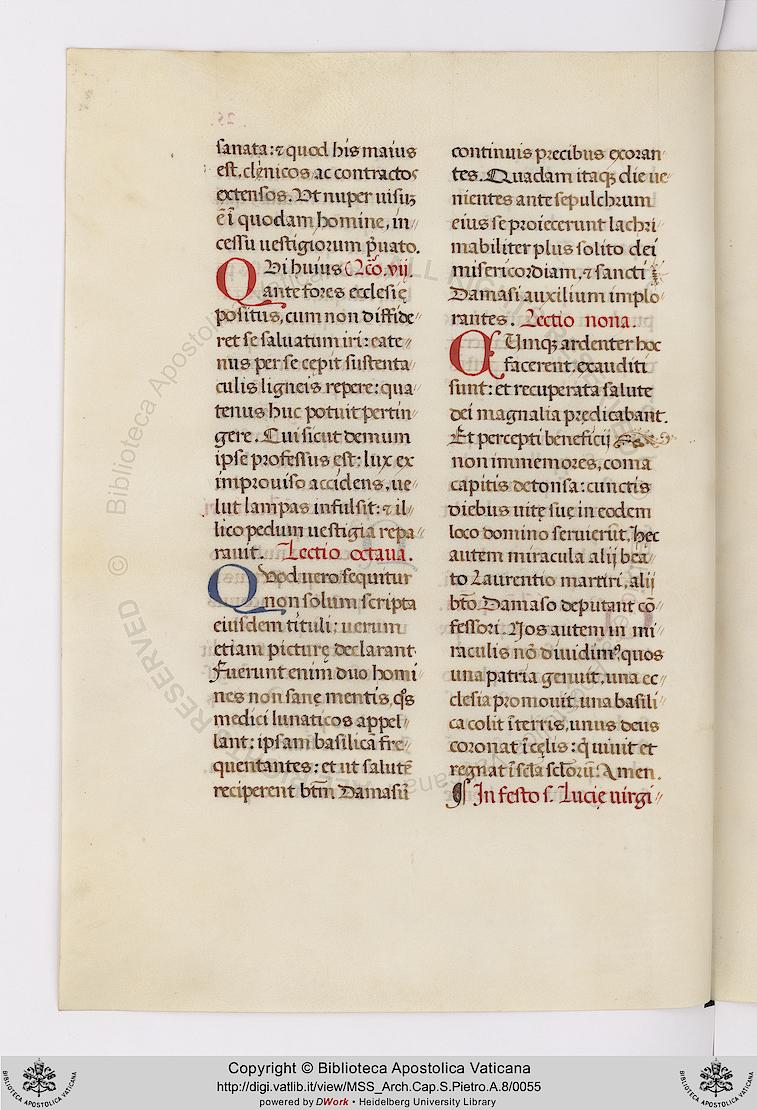 sanata: ⁊ quod his maius
est, clenicos ac contractos
extensos. Vt nuper uisuʒ
ē ī quodam homine, in//
cessu uestigiorum p̄uato.
QVi huius Lc̄o. vij.
ante fores ecclesię
positus, cum non diffide//
ret se saluatum iri: eate//
nus per se cepit sustenta//
culis ligneis repere: qua//
tenus huc potuit pertin//
gere. Cui sicut demum
ipse professus est: lux ex
improuiso accidens, ue//
lut lampas infulsit: ⁊ il//
lico pedum uestigia repa//
rauit. Lectio octaua.
QVod uero sequitur
non solum scripta
eiusdem tituli: uerum
etiam picturę declarant.
Fuerunt enim duo homi//
nes non sanę mentis, qͦs
medici lunaticos appel//
lant: ipsam basilica fre//
quentantes: et ut salutē
reciperent btm̄ Damasū
continuis precibus exoran//
tes. Quadam itaqʒ die ue//
nientes ante sepulchrum
eius se proiecerunt lachri//
mabiliter plus solito dei
misericordiam, ⁊ sancti
Damasi auxilium implo//
rantes. Lectio nona.
CVmqʒ ardenter hoc
facerent, exauditi
sunt: et recuperata salute
dei magnalia prędicabant.
Et percepti beneficij
non immemores, coma
capitis detonsa: cunctis
diebus uitę suę in eodem
loco domino seruierūt. hęc
autem miracula alij bea//
to Laurentio martiri, alij
bt̄o Damaso deputant cō//
fessori: Nos autem in mi//
raculis nō diuidimꝰ, quos
una patria genuit, una ec//
clesia promouit, una basili//
ca colit ī terris, unus deus
coronat ī cęlis: q̄ uiuit et
regnat ī scl̄a scl̄orū: Amen.
¶ In festo s. Lucię uirgi//
25.
© Biblioteca Apostolica Vaticana
ALL RIGHTS RESERVED
Copyright © Biblioteca Apostolica Vaticana
http://digi.vatlib.it/view/MSS_Arch.Cap.S.Pietro.A.8/0055
powered by DWork • Heidelberg University Library
BIBLIOTECA APOSTOLICA VATICANA
BIBLIOTECA APOSTOLICA VATICANA